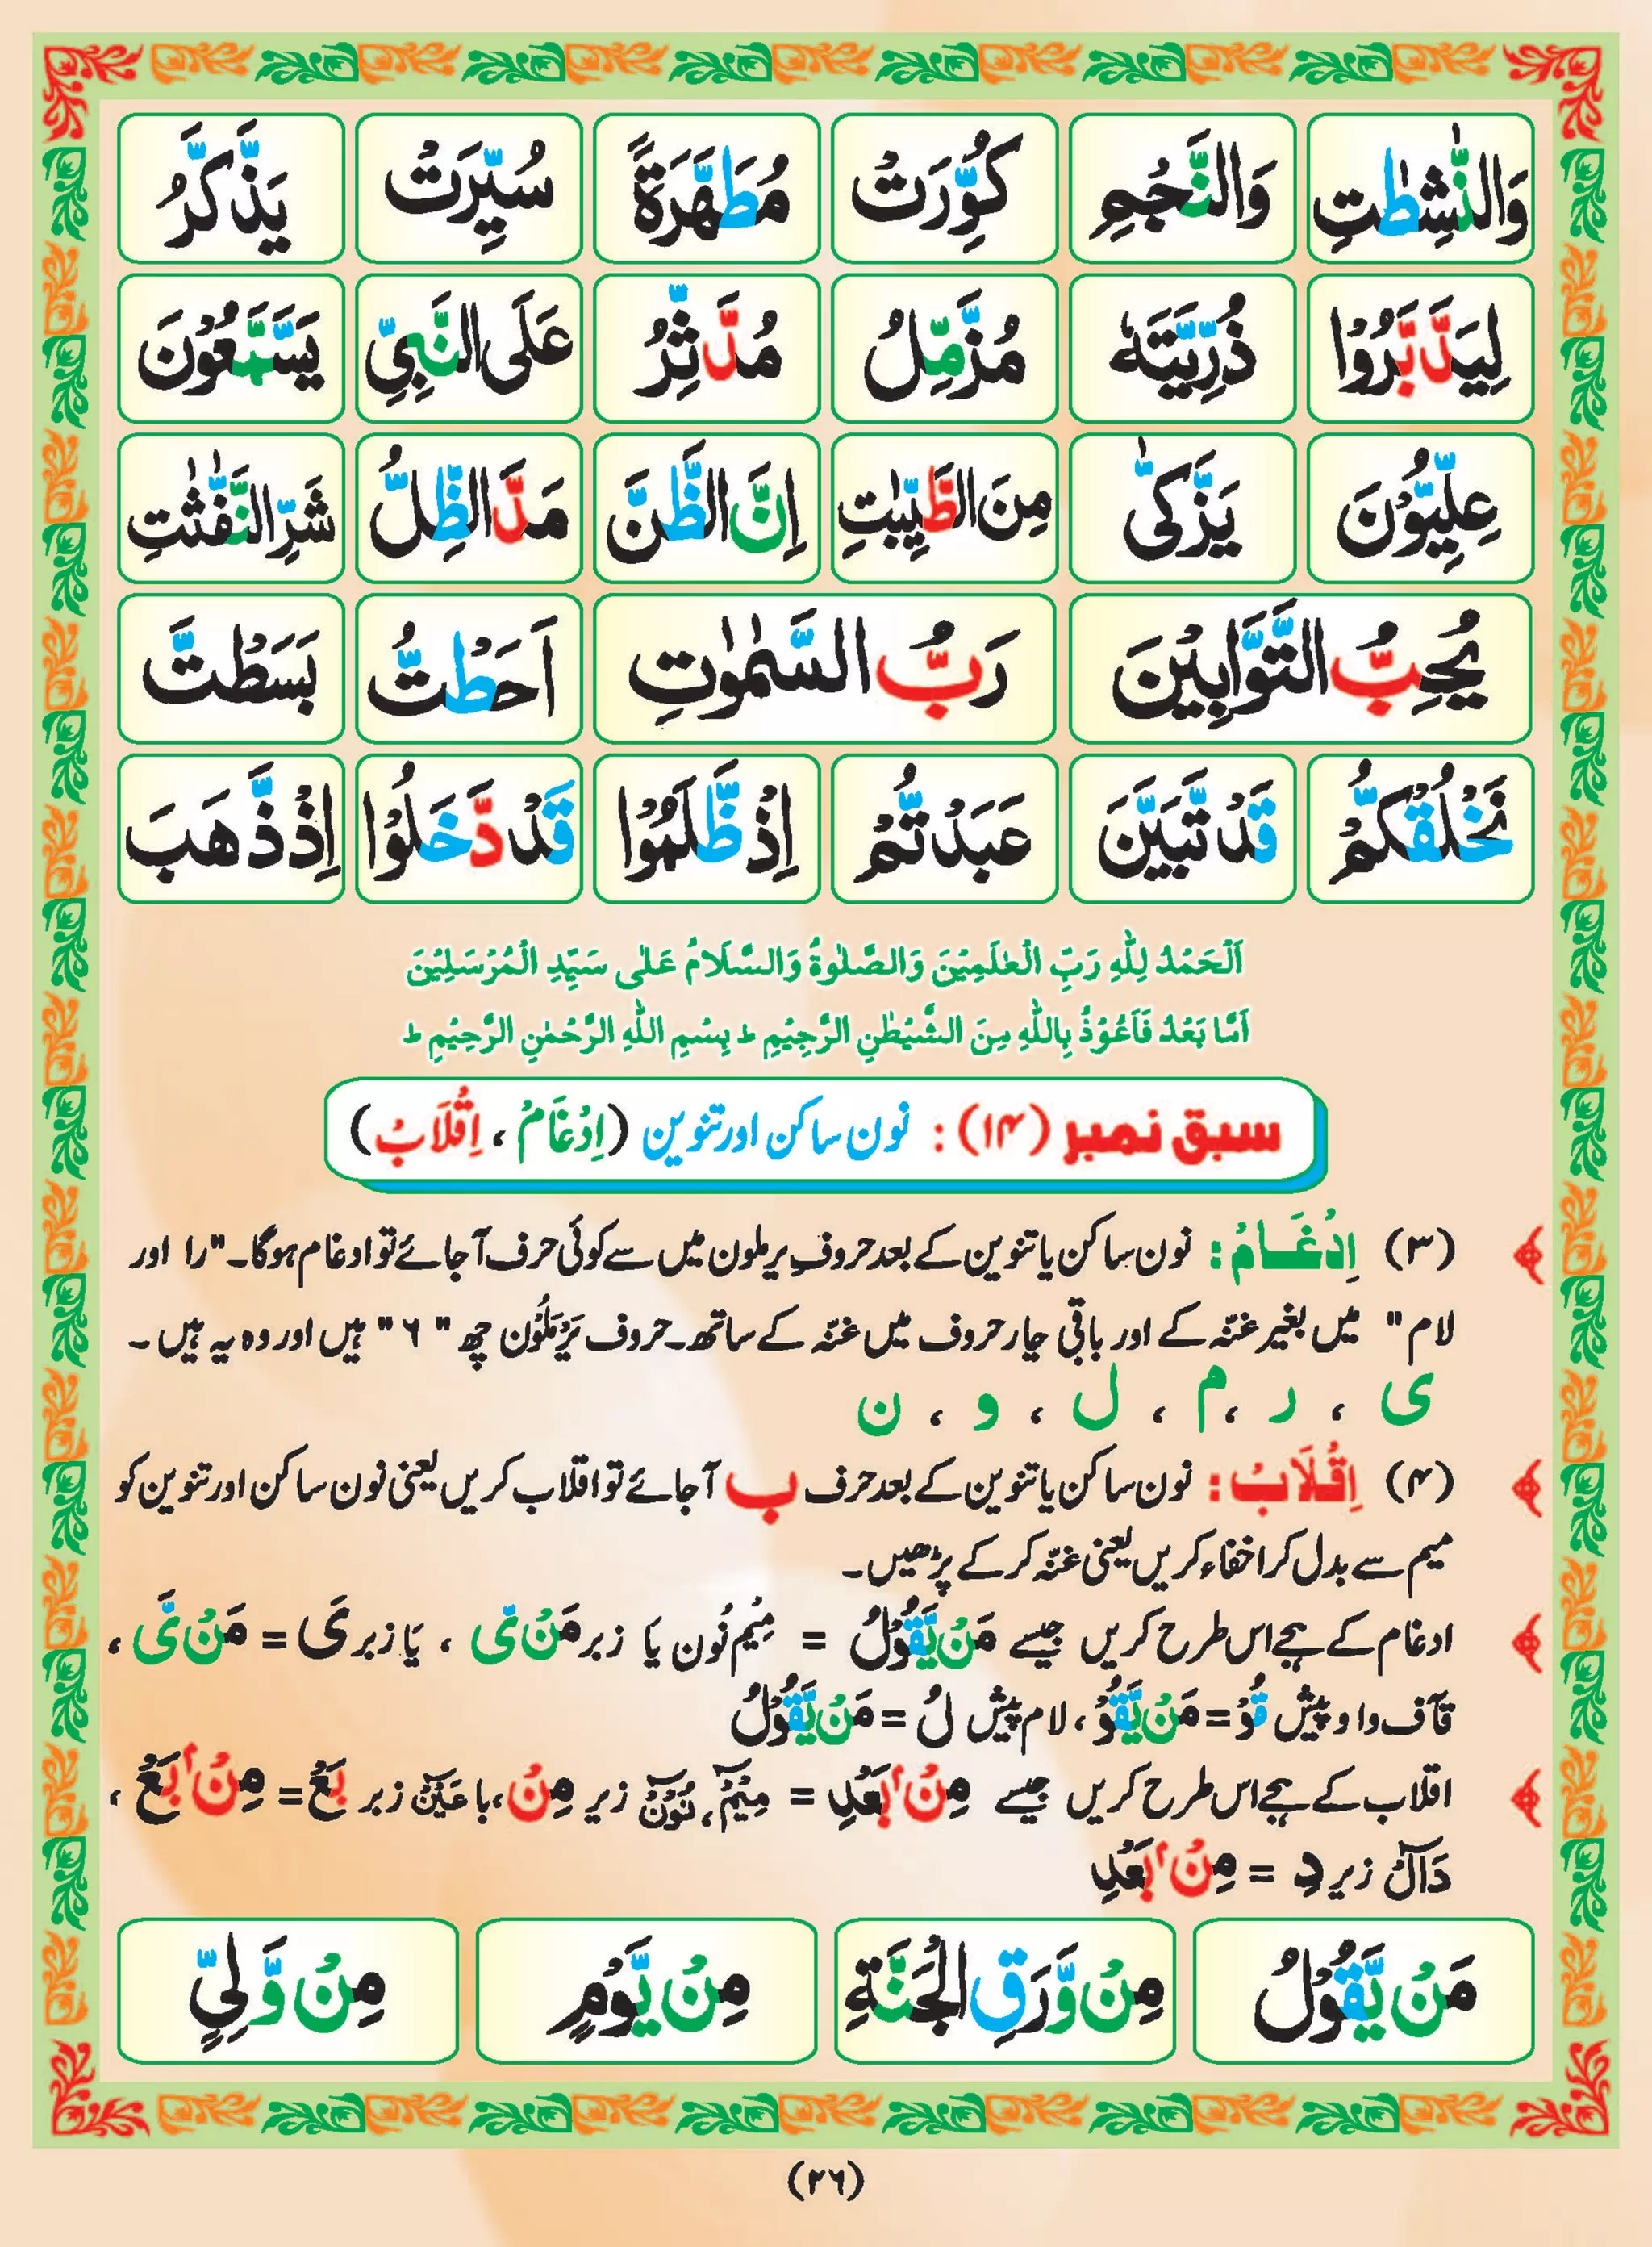 وَالنّٰشِطٰتِ وَالنَّجْمِ كُوِّرَتْ مُطَهَّرَةً سُيِّرَتْ يَذَّكَّرُ
لِيَدَّبَّرُوْا ذُرِّيَّتَهٗ مُزَّمِّلُ مُدَّثِّرُ عَلَى النَّبِيِّ يَسَّمَّعُوْنَ
عِلِّيُّوْنَ يَزَّكّٰى مِنَ الطَّيِّبٰتِ اِنَّ الظَّنَّ مَدَّ الظِّلَّ شَرِّ النَّفّٰثٰتِ
يُحِبُّ التَّوَّابِيْنَ رَبُّ السَّمٰوٰتِ اَحَطْتُّ بَسَطْتَّ
نَخْلُقْكُّمْ قَدْ تَّبَيَّنَ عَبَدْتُّمْ اِذْ ظَّلَمُوْا قَدْ دَّخَلُوْا اِذْ ذَّهَبَ
اَلْحَمْدُ لِلّٰهِ رَبِّ الْعٰلَمِيْنَ وَالصَّلٰوةُ وَالسَّلَامُ عَلٰى سَيِّدِ الْمُرْسَلِيْنَ
اَمَّا بَعْدُ فَاَعُوْذُ بِاللّٰهِ مِنَ الشَّيْطٰنِ الرَّجِيْمِ ط بِسْمِ اللّٰهِ الرَّحْمٰنِ الرَّحِيْمِ ط
سبق نمبر (۱۴) : نون ساکن اور تنوین (اِدْغَامْ ، اِقْلَابْ)
(۳) اِدْغَامْ : نون ساکن یا تنوین کے بعد حروفِ یرملون میں سے کوئی حرف آ جائے تو ادغام ہوگا۔ "را اور
لام" میں بغیر غنّہ کے اور باقی چار حروف میں غنّہ کے ساتھ۔ حروف یَرْمَلُوْن چھ "۶" ہیں اور وہ یہ ہیں۔
ی ، ر ، م ، ل ، و ، ن
(۴) اِقْلَابْ : نون ساکن یا تنوین کے بعد حرف ب آ جائے تو اقلاب کریں یعنی نون ساکن اور تنوین کو
میم سے بدل کر اخفاء کریں یعنی غنّہ کر کے پڑھیں۔
ادغام کے ہجے اس طرح کریں جیسے مَنْ يَّقُوْلُ = مِیْم نُون یَا زبر مَنْ یّ ، یَا زبر یَ = مَنْ یَّ ،
قآف واو پیش قُوْ = مَنْ يَّقُوْ ، لام پیش لُ = مَنْ يَّقُوْلُ
اقلاب کے ہجے اس طرح کریں جیسے مِنْۢ بَعْدِ = مِیْمْ ، نُوْنْ زیر مِنْ ، با عَیْنْ زبر بَعْ = مِنْۢ بَعْ ،
دَآلْ زیر دِ = مِنْۢ بَعْدِ
مَنْ يَّقُوْلُ مِنْ وَّرَقِ الْجَنَّةِ مِنْ يَّوْمٍ مِنْ وَّلِيٍّ
(۲۶)